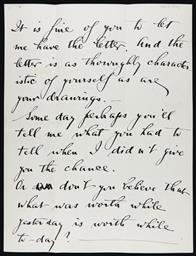 It is fine of you to let
me have the letter. And the
letter is as thoroughly character
istic of yourself as are
your drawings. —
Some day perhaps you'll
tell me what you had to
tell when I didn't give
you the chance.
Or don't you believe that
what was worth while
yesterday is worth while
to-day? —